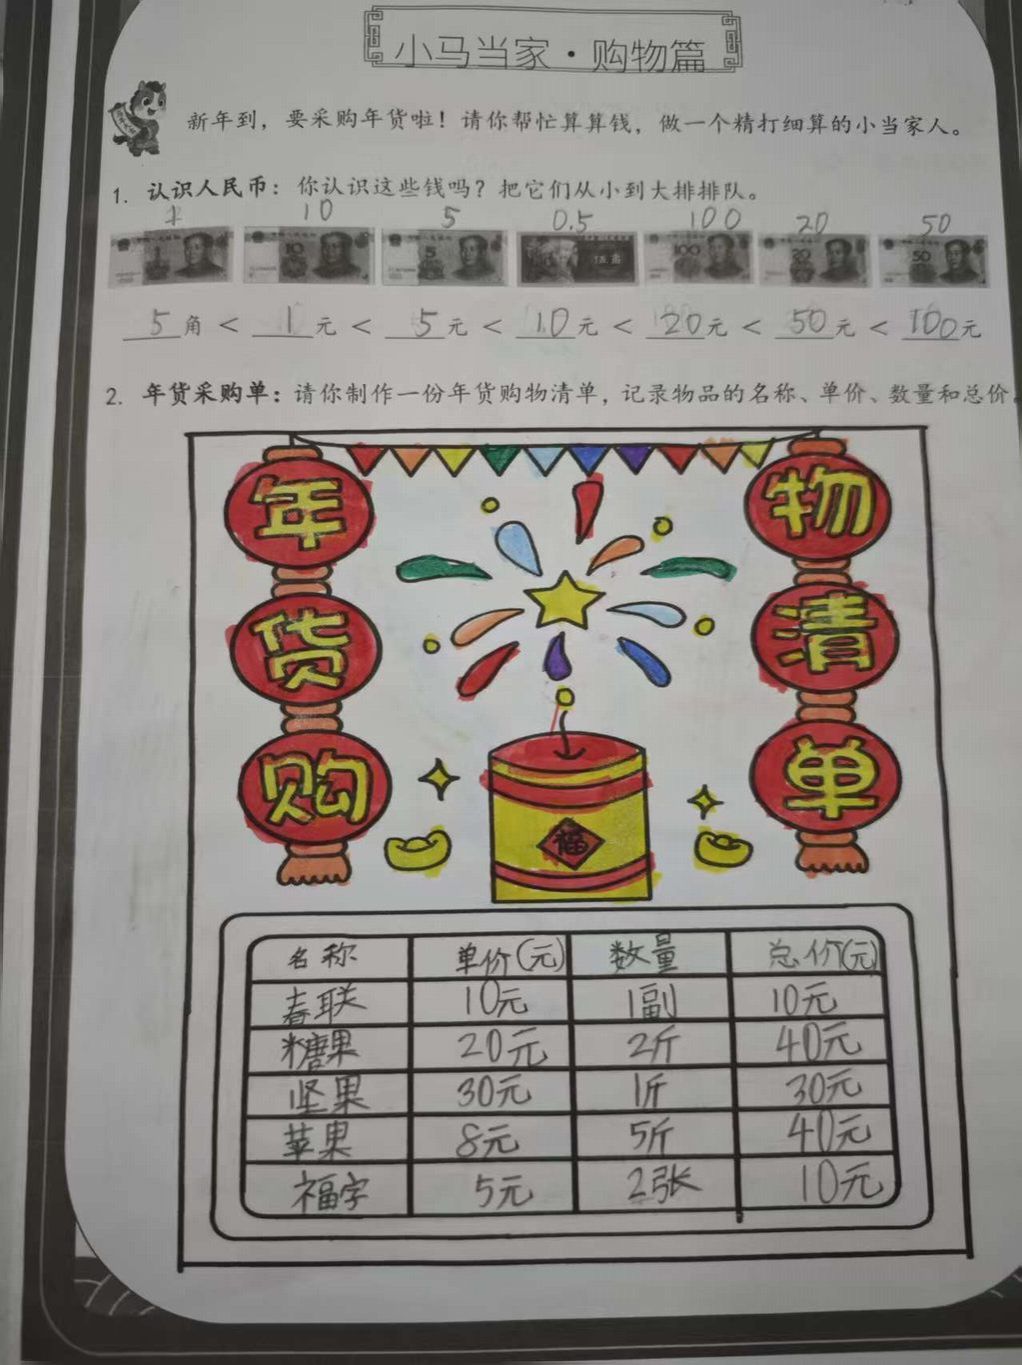 小马当家·购物篇
新年到，要采购年货啦！请你帮忙算算钱，做一个精打细算的小当家人。
1. 认识人民币：你认识这些钱吗？把它们从小到大排排队。
1 10 5 0.5 100 20 50
5角 < 1元 < 5元 < 10元 < 20元 < 50元 < 100元
2. 年货采购单：请你制作一份年货购物清单，记录物品的名称、单价、数量和总价。
年货购
物清单
福
名称 单价(元) 数量 总价(元)
春联 10元 1副 10元
糖果 20元 2斤 40元
坚果 30元 1斤 30元
苹果 8元 5斤 40元
福字 5元 2张 10元